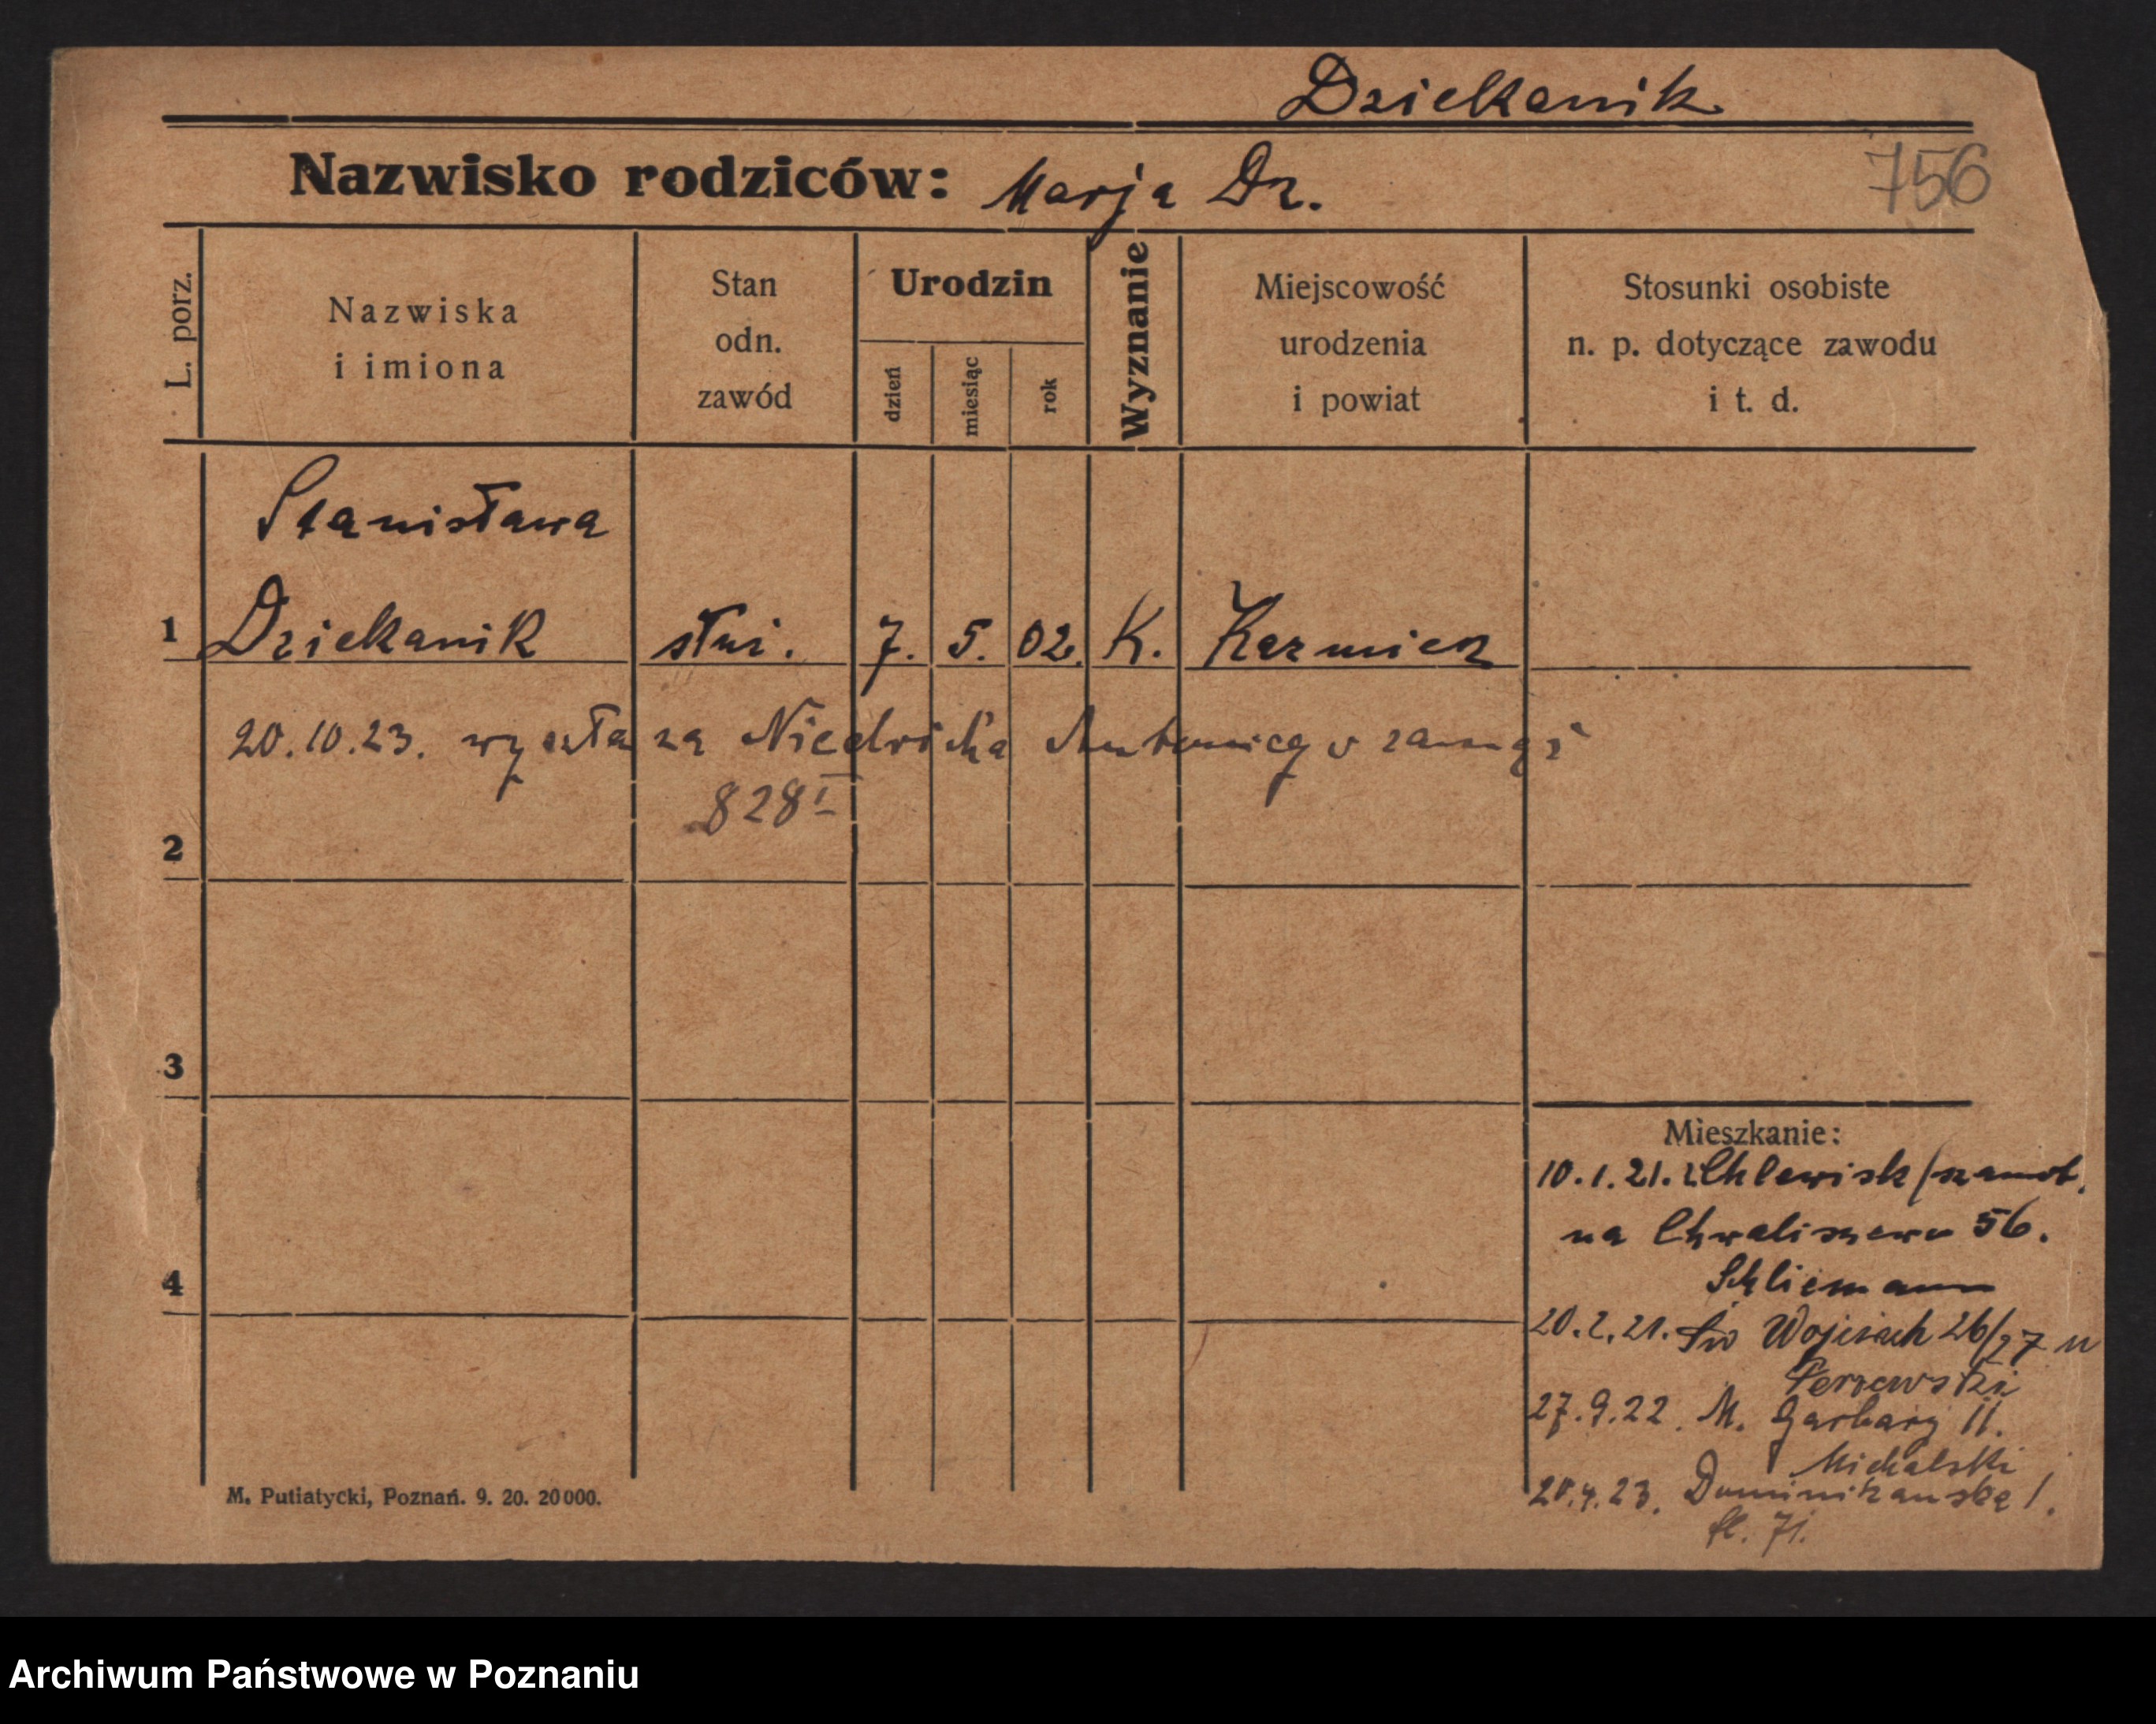 Dziekanik
Nazwisko rodziców: Marja Dz.
756
L. porz.
Nazwiska
i imiona
Stan
odn.
zawód
Urodzin
dzień
miesiąc
rok
Wyznanie
Miejscowość
urodzenia
i powiat
Stosunki osobiste
n. p. dotyczące zawodu
i t. d.
Stanisława
1 Dziekanik służ. 7. 5. 02. K. Kazmierz
20.10.23. wyszła za Antoniego zamąż
828 I
2
3
4
Mieszkanie:
10.1.21. z Chlewisk/szamot.
na Chwaliszewo 56.
Schliemann
20.2.21. Św Wojciech 26/27 u
27.9.22. M. Garbary 11.
Michalski
20.4.23. Dominikańska 1.
fl. 71.
M. Putiatycki, Poznań. 9. 20. 20000.
Archiwum Państwowe w Poznaniu